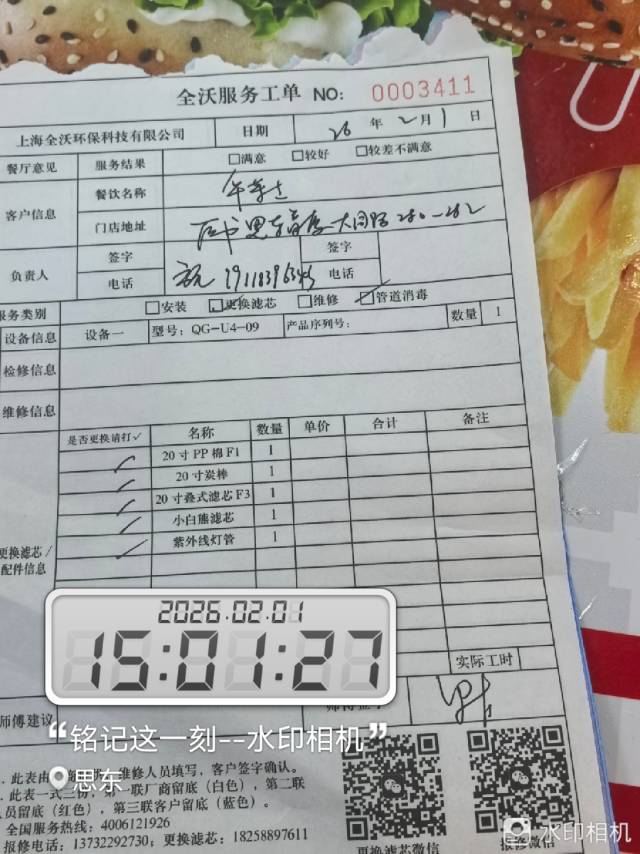 全沃服务工单 NO: 0003411
上海全沃环保科技有限公司 日期 26 年 2 月 1 日
餐厅意见 服务结果 □满意 □较好 □较差不满意
客户信息 餐饮名称
门店地址 大同路 280-282
负责人 签字 签字
电话 电话
服务类别 □安装 □更换滤芯 □维修 □管道消毒
设备信息 设备一 型号: QG-U4-09 产品序列号: 数量 1
检修信息
维修信息
是否更换请打✓ 名称 数量 单价 合计 备注
✓ 20寸PP棉F1 1
✓ 20寸炭棒 1
✓ 20寸叠式滤芯F3 1
✓ 小白熊滤芯 1
✓ 紫外线灯管 1
更换滤芯/
配件信息
2026.02.01
15:01:27
实际工时
师傅建议
“铭记这一刻--水印相机”
思东
.此表由 维修人员填写，客户签字确认。
.此表一式三份，第一联厂商留底（白色），第二联
人员留底（红色），第三联客户留底（蓝色）。
全国服务热线: 4006121926
报修电话: 13732292730; 更换滤芯: 18258897611
更换滤芯微信 报修微信
水印相机